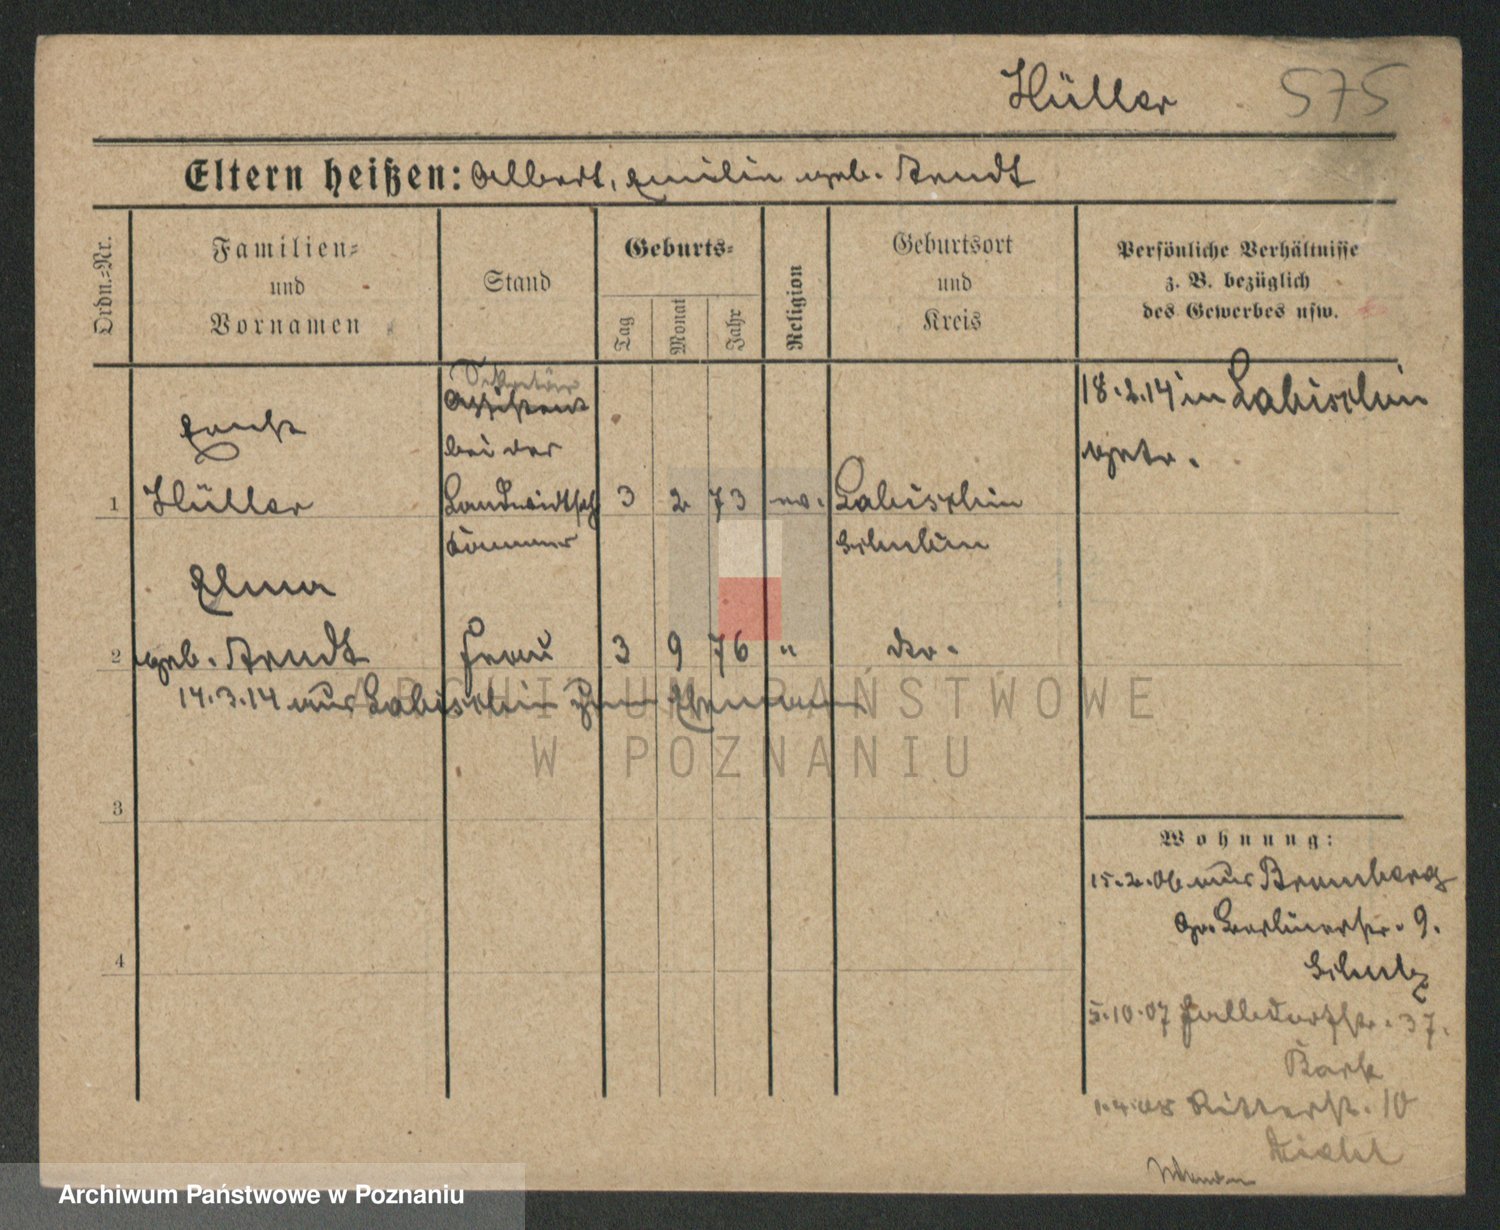 Hüller 575
Eltern heißen: Albert, Emilie geb. Arndt
Ordn.=Nr.
Familien=
und
Vornamen
Stand
Geburts=
Tag
Monat
Jahr
Religion
Geburtsort
und
Kreis
Persönliche Verhältnisse
z. B. bezüglich
des Gewerbes usw.
Sekretär
Assistent
bei der
Landwirtsch
Kammer
1
Ernst
Hüller
3 2 73 ev.
Labischin
Schubin
18.2.14 in Labischin
getr.
2
Elma
geb. Arndt
Frau
3 9 76 "
do.
14.3.14 aus Labischin zum Ehemann
3
4
Wohnung:
15.2.06 aus Bromberg
Gr. Berlinerstr. 9.
Schulz
5.10.07 Halldorfstr. 37.
1.4.08 Ritterstr. 10
ARCHIWUM PAŃSTWOWE
W POZNANIU
Archiwum Państwowe w Poznaniu